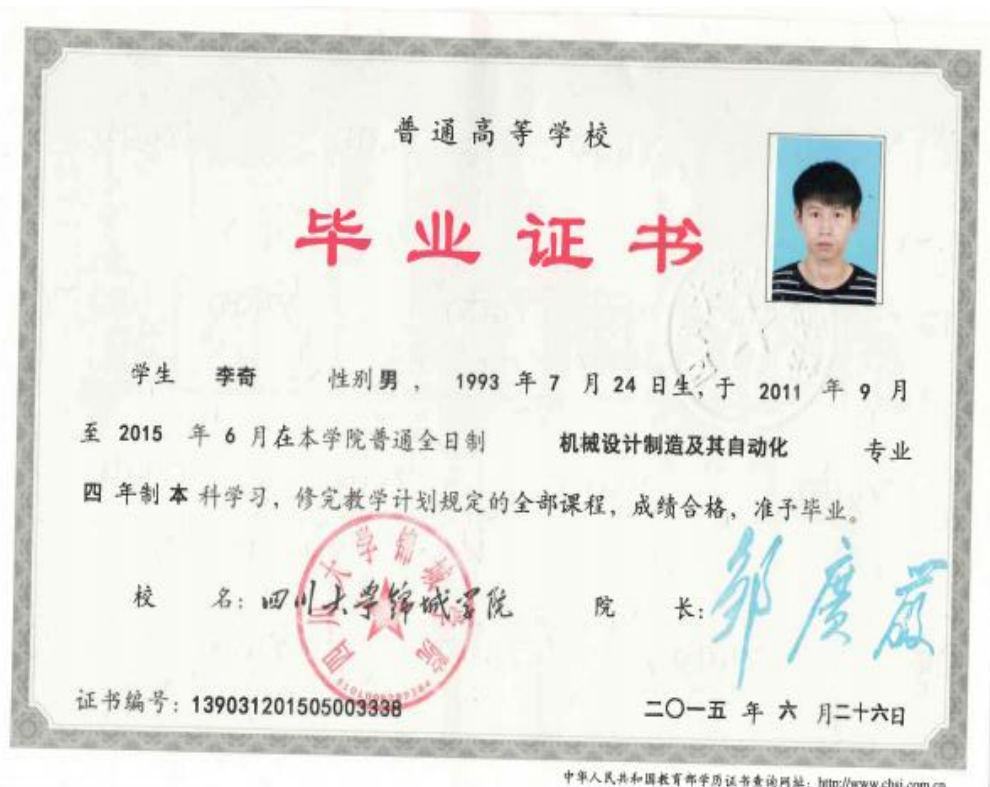 普通高等学校
毕业证书
学生 李奇 性别 男 ， 1993 年 7 月 24 日生，于 2011 年 9 月
至 2015 年 6 月在本学院普通全日制 机械设计制造及其自动化 专业
四 年制 本 科学习，修完教学计划规定的全部课程，成绩合格，准予毕业。
校 名：四川大学锦城学院 院 长：邹廣嚴
四川大学锦城学院
证书编号：139031201505003338 二〇一五 年 六 月二十六日
中华人民共和国教育部学历证书查询网址：http://www.chsi.com.cn